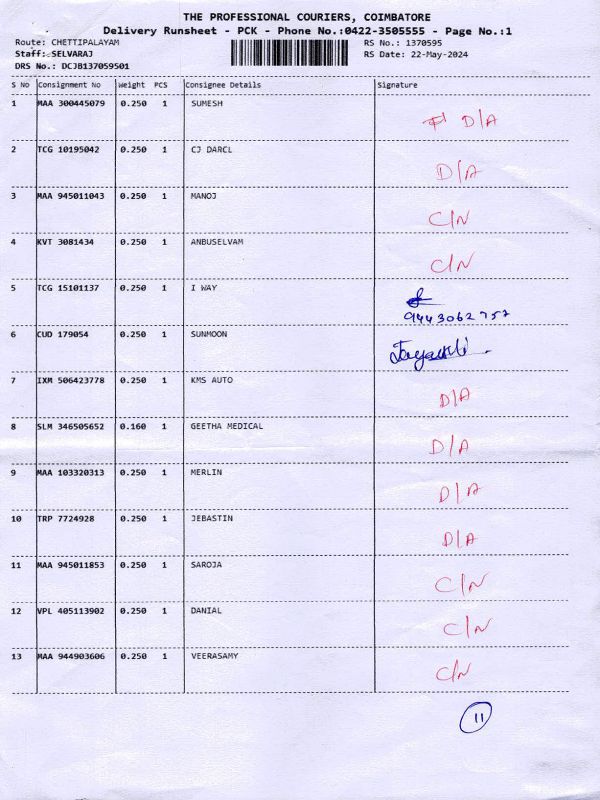 THE PROFESSIONAL COURIERS, COIMBATORE
Delivery Runsheet - PCK - Phone No.:0422-3505555 - Page No.:1
Route: CHETTIPALAYAM RS No.: 1370595
Staff: SELVARAJ RS Date: 22-May-2024
DRS No.: DCJB137059501
S No Consignment No Weight PCS Consignee Details Signature
1 MAA 300445079 0.250 1 SUMESH D/A
2 TCG 10195042 0.250 1 CJ DARCL D/A
3 MAA 945011043 0.250 1 MANOJ C/N
4 KVT 3081434 0.250 1 ANBUSELVAM C/N
5 TCG 15101137 0.250 1 I WAY 9443062757
6 CUD 179054 0.250 1 SUNMOON
7 IXM 506423778 0.250 1 KMS AUTO D/A
8 SLM 346505652 0.160 1 GEETHA MEDICAL D/A
9 MAA 103320313 0.250 1 MERLIN D/A
10 TRP 7724928 0.250 1 JEBASTIN D/A
11 MAA 945011853 0.250 1 SAROJA C/N
12 VPL 405113902 0.250 1 DANIAL C/N
13 MAA 944903606 0.250 1 VEERASAMY C/N
11